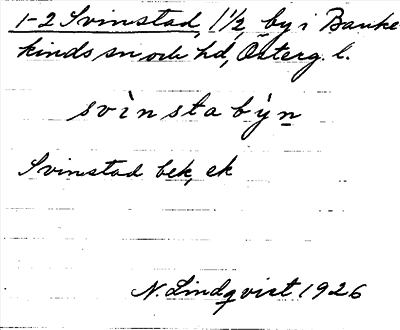 1-2 Svinstad, 1 1/2 by i Banke
kinds sn och hd, Österg. l.
svìnsta bẏn
Svinstad bek, ek
N. Lindqvist 1926